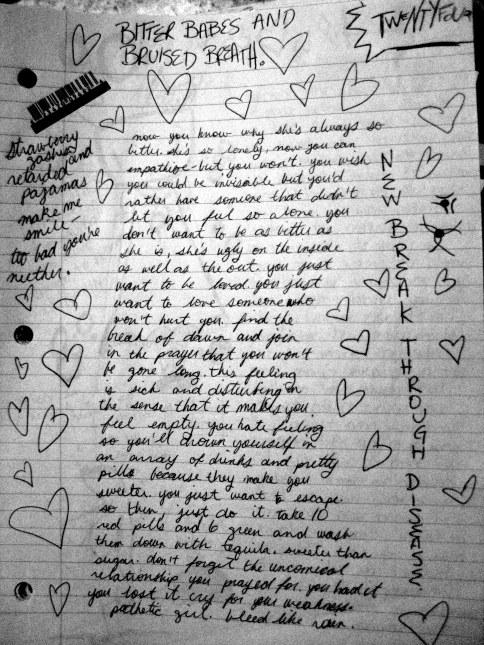 BITTER BABES AND
BRUISED BREATH.
TWENTYFOUR
strawberry
gashes
retarded and
pajamas
make me
smile -
too bad you're
neither.
now you know why she's always so
bitter. she's so lonely. now you can
empathize - but you won't. you wish
you could be invisible but you'd
rather have someone that didn't
let you feel so alone. you
don't want to be as bitter as
she is, she's ugly on the inside
as well as the out. you just
want to be loved. you just
want to love someone who
won't hurt you. find the
break of dawn and join
in the prayer that you won't
be gone long. this feeling
is sick and disturbing in
the sense that it makes you
feel empty. you hate feeling
so you'll drown yourself in
an array of drinks and pretty
pills because they make you
sweeter. you just want to escape.
so then, just do it. take 10
red pills and 6 green and wash
them down with tequila. sweeter than
sugar. don't forget the uncomical
relationship you prayed for. you had it
you lost it cry for your weakness.
pathetic girl. bleed like rain.
NEW BREAK THROUGH DISEASE.